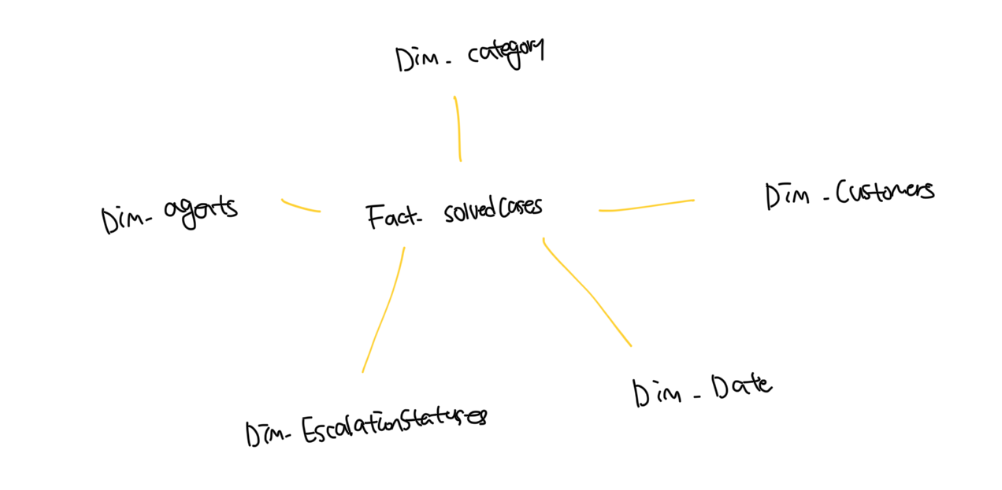 Dim_ category
Dim_ agents
Fact_ solvedCases
Dim_Customers
Dim_EscalationStatuses
Dim_Date